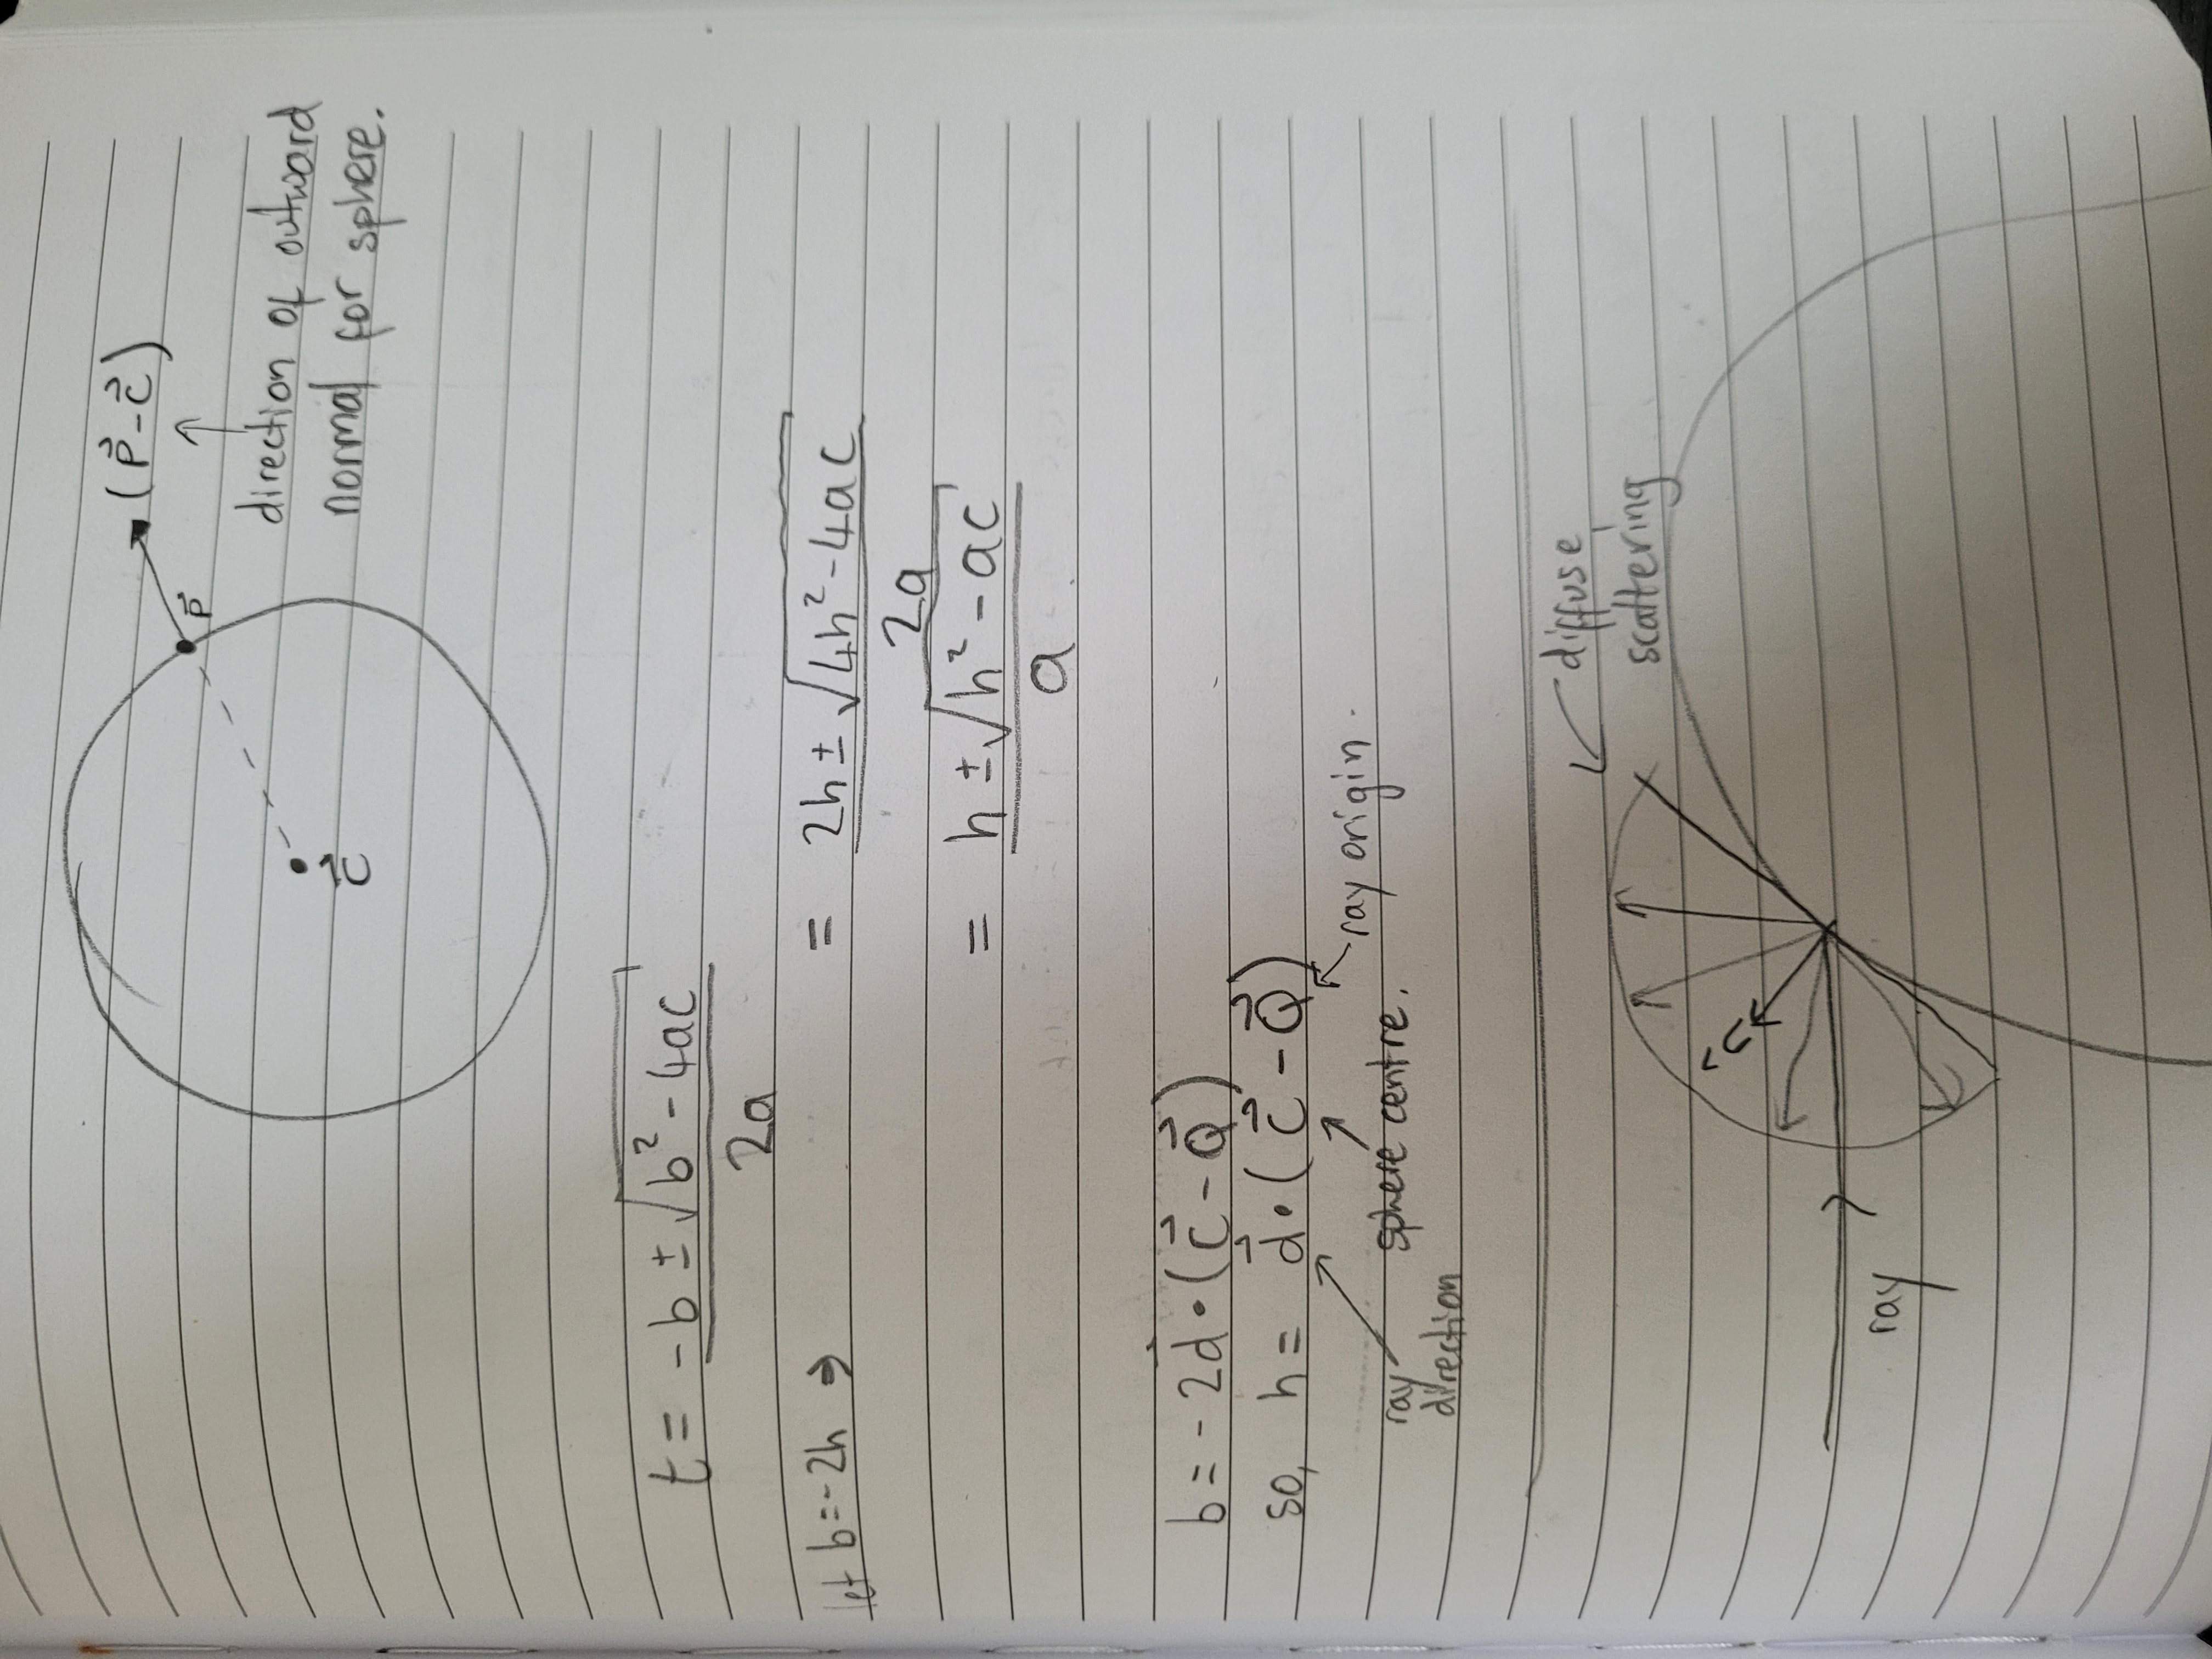 (P⃗ - C⃗)
P⃗
↑
direction of outward
normal for sphere.
C⃗
t = (-b ± √(b² - 4ac)) / 2a
let b = -2h ⇒ = (2h ± √(4h² - 4ac)) / 2a
= (h ± √(h² - ac)) / a
b = -2d⃗ • (C⃗ - Q⃗)
so, h = d⃗ • (C⃗ - Q⃗)
ray origin.
ray
direction
sphere centre.
diffuse
scattering
n̂
ray